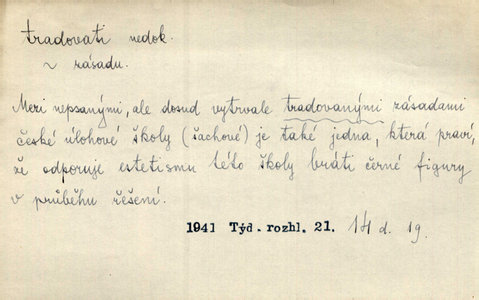 tradovati nedok.
~ zásadu.
Mezi nepsanými, ale dosud vytrvale tradovanými zásadami
české úlohové školy (šachové) je také jedna, která praví,
že odporuje estetismu této školy bráti černé figury
v průběhu řešení.
1941 Týd. rozhl. 21. 14 d. 19.